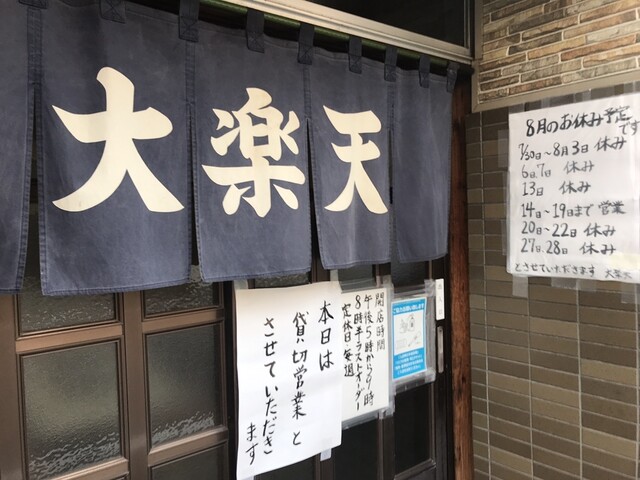 大楽天
8月のお休み予定
です
7/30日〜8月3日休み
6日,7日 休み
13日 休み
14日〜19日まで営業
20日〜22日休み
27日.28日 休み
とさせていただきます 大楽天
本日は
貸切営業と
させていただきます
開店時間
午後5時から9時
8時半ラストオーダー
定休日・毎週